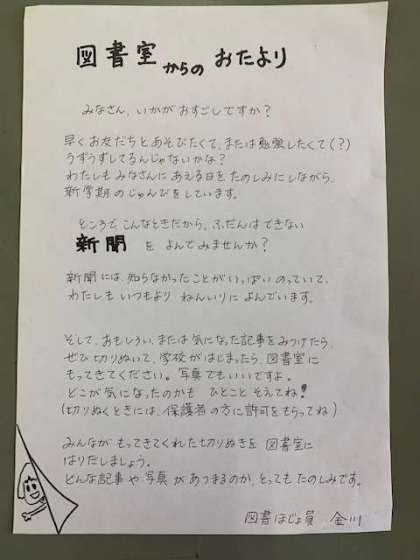 図書室からの おたより
みなさん、いかがおすごしですか?
早くお友だちとあそびたくて、または勉強したくて(?)
うずうずしてるんじゃないかな?
わたしもみなさんにあえる日をたのしみにしながら、
新学期のじゅんびをしています。
ところで、こんなときだから、ふだんはできない
新聞 をよんでみませんか?
新聞には、知らなかったことがいっぱいのっていて、
わたしもいつもより ねんいりによんでいます。
そして、おもしろい、または気になった記事をみつけたら、
ぜひ切りぬいて、学校がはじまったら、図書室に
もってきてください。写真でもいいですよ。
どこが気になったのかも ひとことそえてね!
(切りぬくときには、保護者の方に許可をもらってね)
みんながもってきてくれた切りぬきを図書室に
はりだしましょう。
どんな記事や写真があつまるのか、とってもたのしみです。
図書ほじょ員 金川